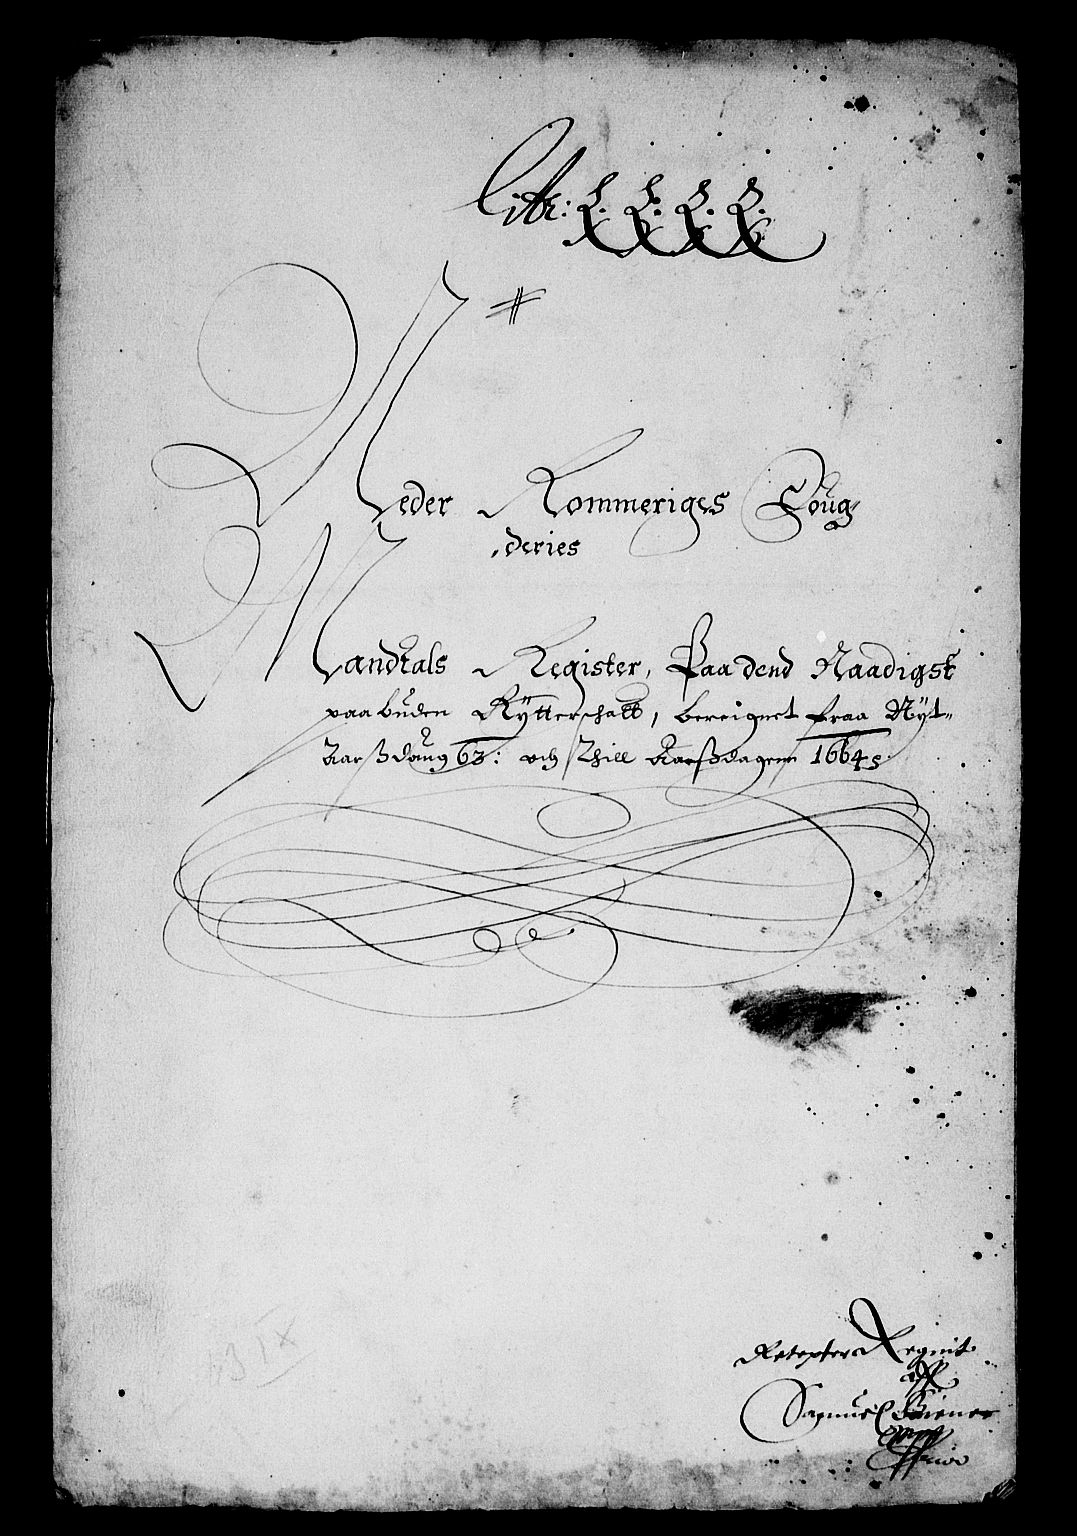 Litr: L. L. L. L.
Neder Rommeriges Foug
deries
Mandtals Register, Paa dend Naadigst
paabuden Rytterschatt, bereignet fraa Nyt-
Aarsdaug 63: och Thill Aarsdagenn 1664
Samuel